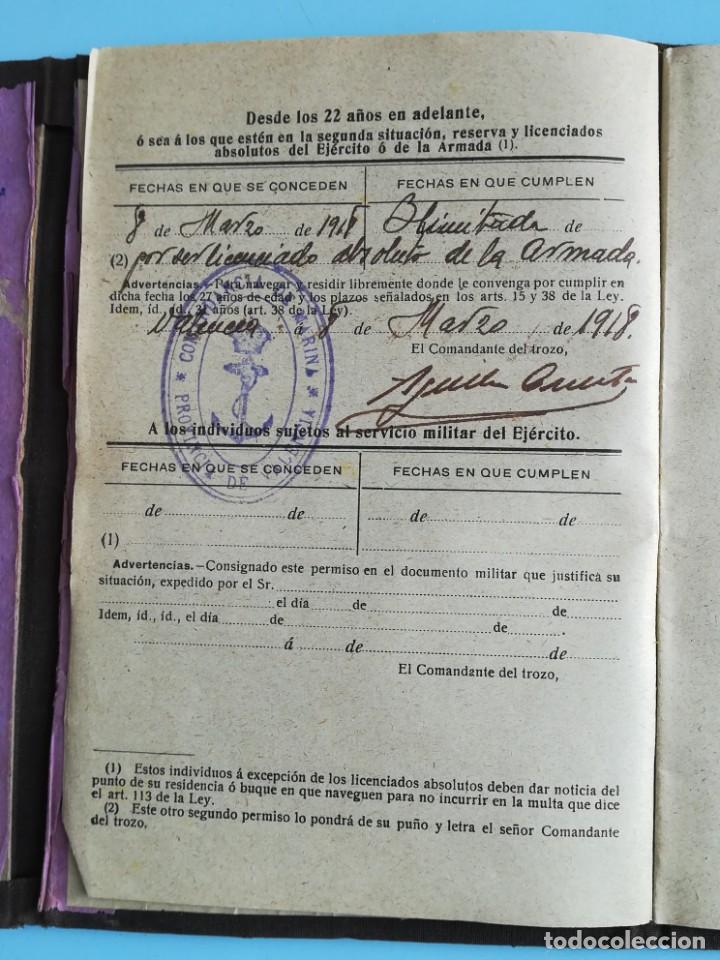 Desde los 22 años en adelante,
ó sea á los que estén en la segunda situación, reserva y licenciados
absolutos del Ejército ó de la Armada (1).
FECHAS EN QUE SE CONCEDEN
FECHAS EN QUE CUMPLEN
8 de Marzo de 1918
Ilimitada de
(2) por ser licenciado absoluto de la Armada.
Advertencias.—Para navegar y residir libremente donde le convenga por cumplir en
dicha fecha los 27 años de edad y los plazos señalados en los arts. 15 y 38 de la Ley.
Idem, íd., íd., 31 años (art. 38 de la Ley).
Valencia á 8 de Marzo de 1918.
El Comandante del trozo,
COMANDANCIA DE MARINA
PROVINCIA DE VALENCIA
A los individuos sujetos al servicio militar del Ejército.
FECHAS EN QUE SE CONCEDEN
FECHAS EN QUE CUMPLEN
de de
de de
(1)
Advertencias.—Consignado este permiso en el documento militar que justifica su
situación, expedido por el Sr.
el día de de
Idem, íd., íd., el día de de .
á de de
El Comandante del trozo,
(1) Estos individuos á excepción de los licenciados absolutos deben dar noticia del
punto de su residencia ó buque en que naveguen para no incurrir en la multa que dice
el art. 113 de la Ley.
(2) Este otro segundo permiso lo pondrá de su puño y letra el señor Comandante
del trozo,
todocoleccion
todocoleccion.net